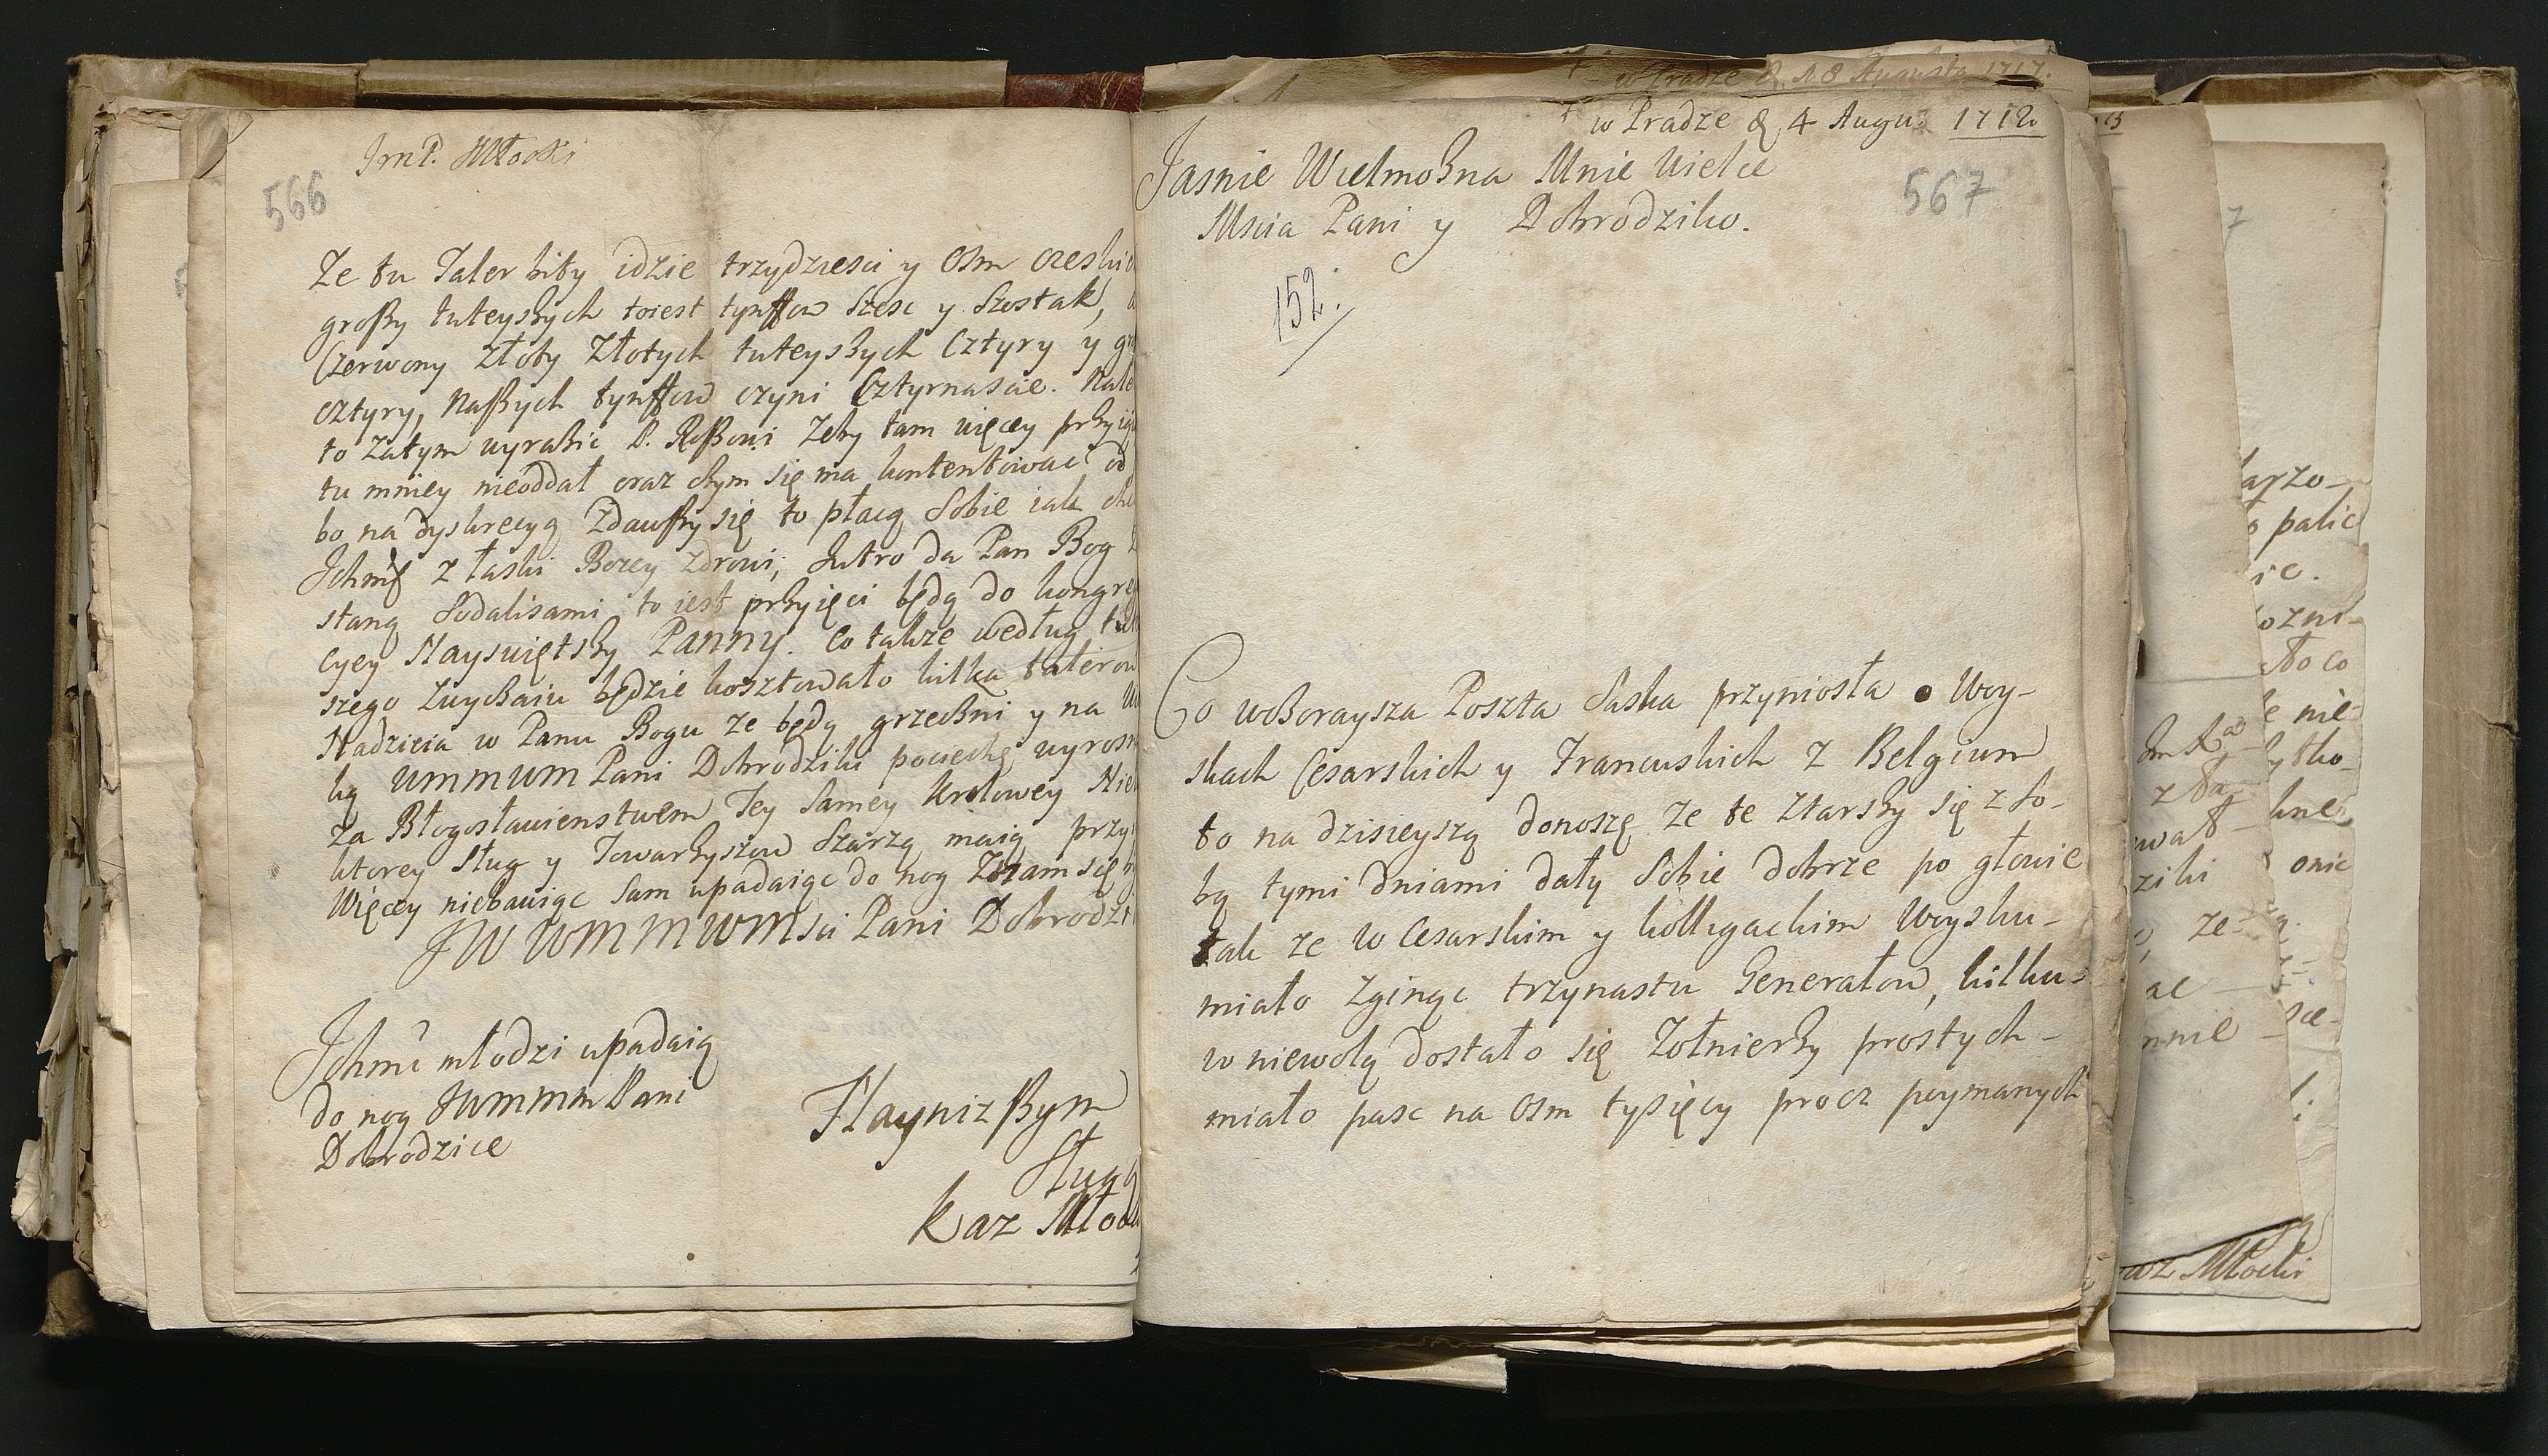 JmP. Młocki
566
Ze tu Taler bity idzie trzydziesci y osm czeski
groszy tuteyszych toiest tynffow szesc y szostak,
Czerwony złoty Złotych tuteyszych Cztyry y
cztyry, Naszych tynffow czyni Cztyrnascie.
to zatym wyrazic P. Żeby tam więcy
tu mniey nieoddał oraz czym się ma kontentowac
bo na dyskrecyą Zdawszy się to płacą sobie iak
Ichmć z łaski Bozey zdrowi, Jutro da Pan Bog
staną Sodalisami, to iest przyięci będą do
cyey Nayswiętszy Panny. Co także według
szego zwyczaiu będzie kosztowało kilka talerow
Nadzieia w Panu Bogu ze będą grzeczni y na
ką WMMWM Pani Dobrodziki pociechę wyrosną
za Błogosławienstwem Tey Samey Krolowey
ktorey Sług y Towarzyszow Szarzą maią
Więcy niebawiąc sam upadaiąc do nog Zdam się
JW WMMMWMsci Pani Dobrodzi
Ichmć młodzi upadaią
do nog JWMMM Pani
Dobrodzice
Nayniszszym
Sługą
Kaz Młocki
w Pradze d. 18 Augusta 1712.
w Pradze d. 4 Augu: 1712.
Jasnie Wielmozna Mnie Wielce
Mscia Pani y Dobrodziko.
567
152.
Co wczoraysza Poszta Saska przyniosła o Woy-
skach Cesarskich y Francuskich z Belgium
to na dzisieyszą donoszę ze te starszy się z so-
bą tymi dniami dały Sobie dobrze po głowie
tak ze w Cesarskim y kolligackim Woysku-
miało zginąc trzynastu Generałow, kilku-
w niewolą dostało się Zołnierzy prostych-
miało pasc na osm tysięcy procz poymanych
7
arzo-
palic
ozni-
to co
nie-
ytko-
onic
ziki
ze-
ac
mnie
Kaz Młocki